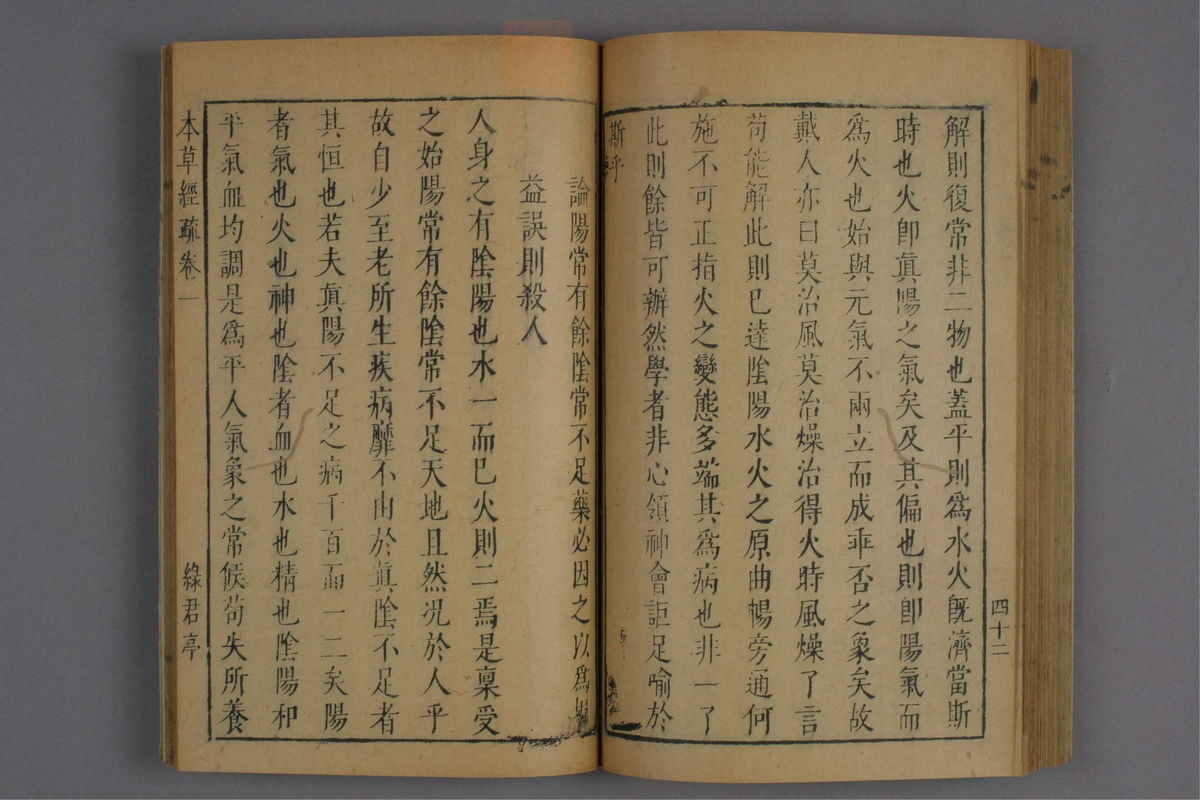 四十二
解則復常非二物也蓋平則爲水火旣濟當斯
時也火卽眞陽之氣矣及其偏也則卽陽氣而
爲火也始與元氣不兩立而成乖否之象矣故
戴人亦曰莫治風莫治燥治得火時風燥了言
苟能解此則已達陰陽水火之原曲暢旁通何
施不可正指火之變態多端其爲病也非一了
此則餘皆可辨然學者非心領神會詎足喻於
斯乎
論陽常有餘陰常不足藥必因之以爲損
益誤則殺人
人身之有陰陽也水一而已火則二焉是禀受
之始陽常有餘陰常不足天地且然况於人乎
故自少至老所生疾病靡不由於眞陰不足者
其恒也若夫眞陽不足之病千百而一二矣陽
者氣也火也神也陰者血也水也精也陰陽和
平氣血均調是爲平人氣象之常候苟失所養
本草經疏卷一
綠君亭